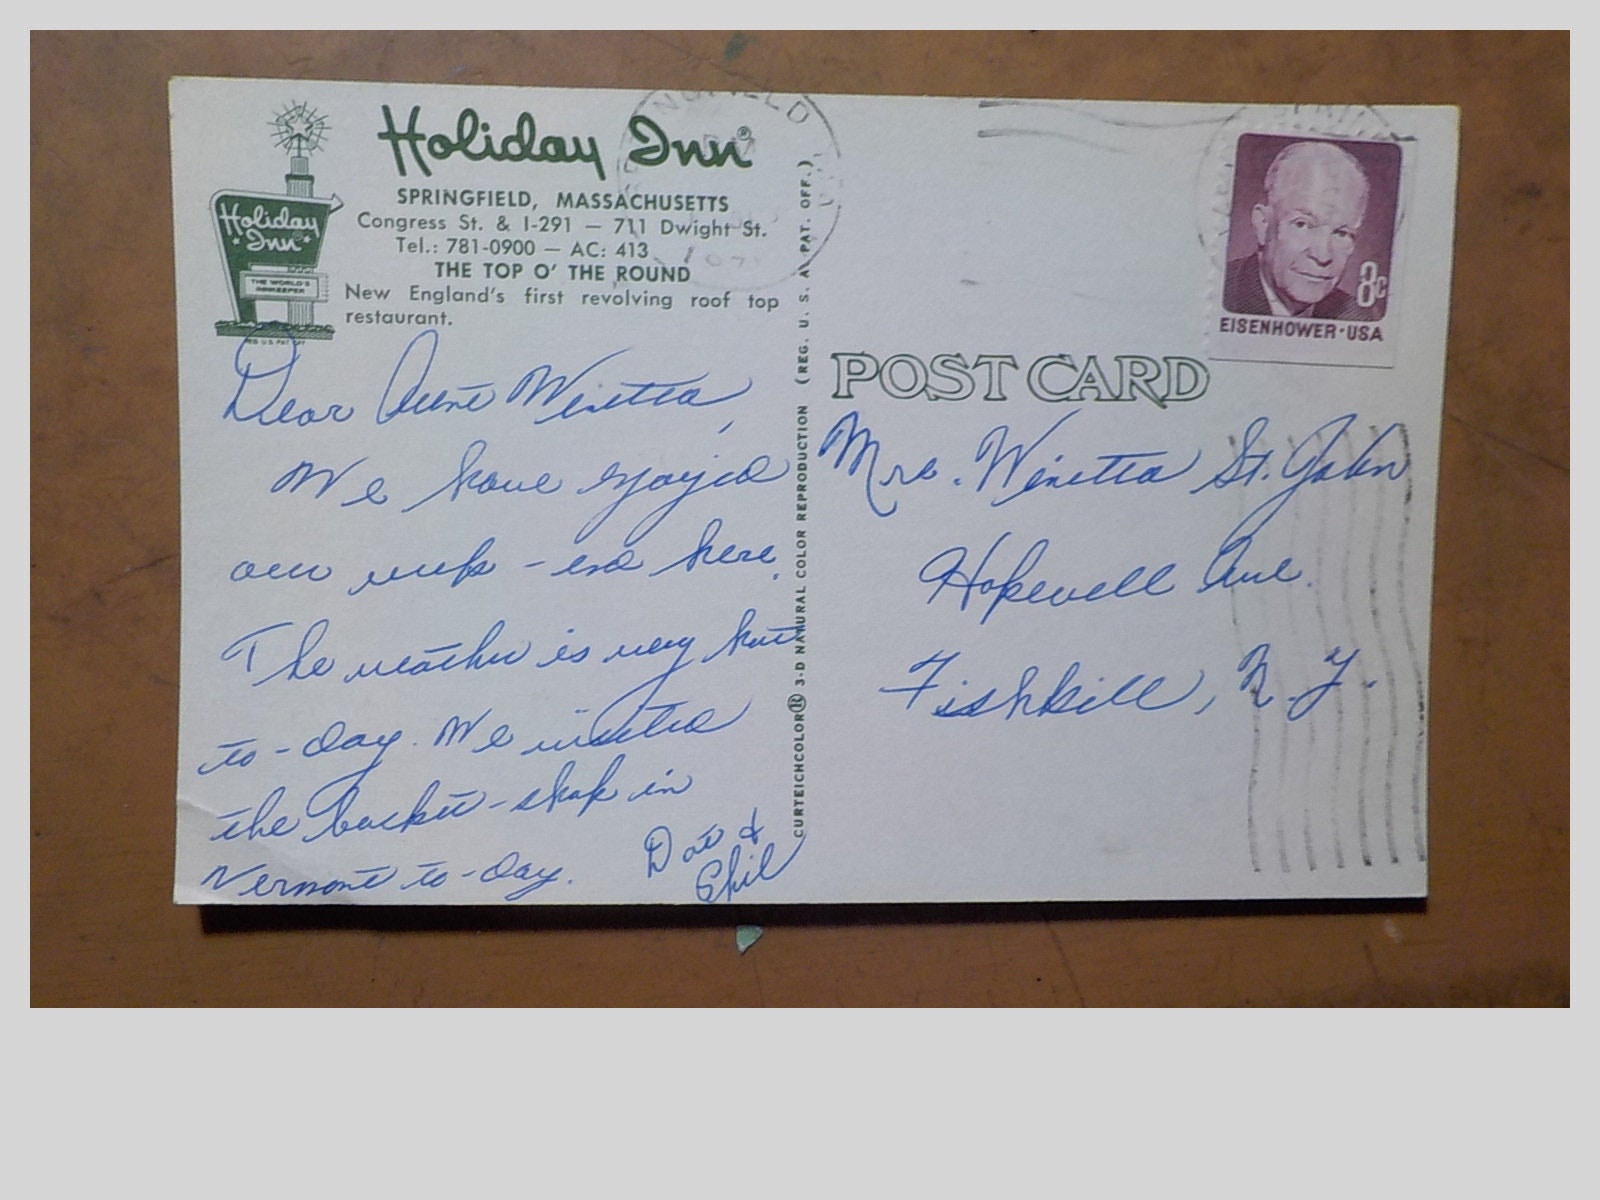 Holiday Inn®
SPRINGFIELD, MASSACHUSETTS
Congress St. & I-291 — 711 Dwight St.
Tel.: 781-0900 — AC: 413
THE TOP O' THE ROUND
New England's first revolving roof top
restaurant.
Holiday
Inn
THE WORLD'S
INNKEEPER
REG. U.S. PAT. OFF.
Dear Aunt Winetta,
We have enjoyed
our week-end here.
The weather is very hot
to-day. We visited
the basket-shop in
Vermont to-day.
Dot &
Phil
CURTEICHCOLOR® 3-D NATURAL COLOR REPRODUCTION (REG. U. S. A. PAT. OFF.)
8c
EISENHOWER·USA
POST CARD
Mrs. Winetta St. John
Hopewell Ave.
Fishkill, N.Y.